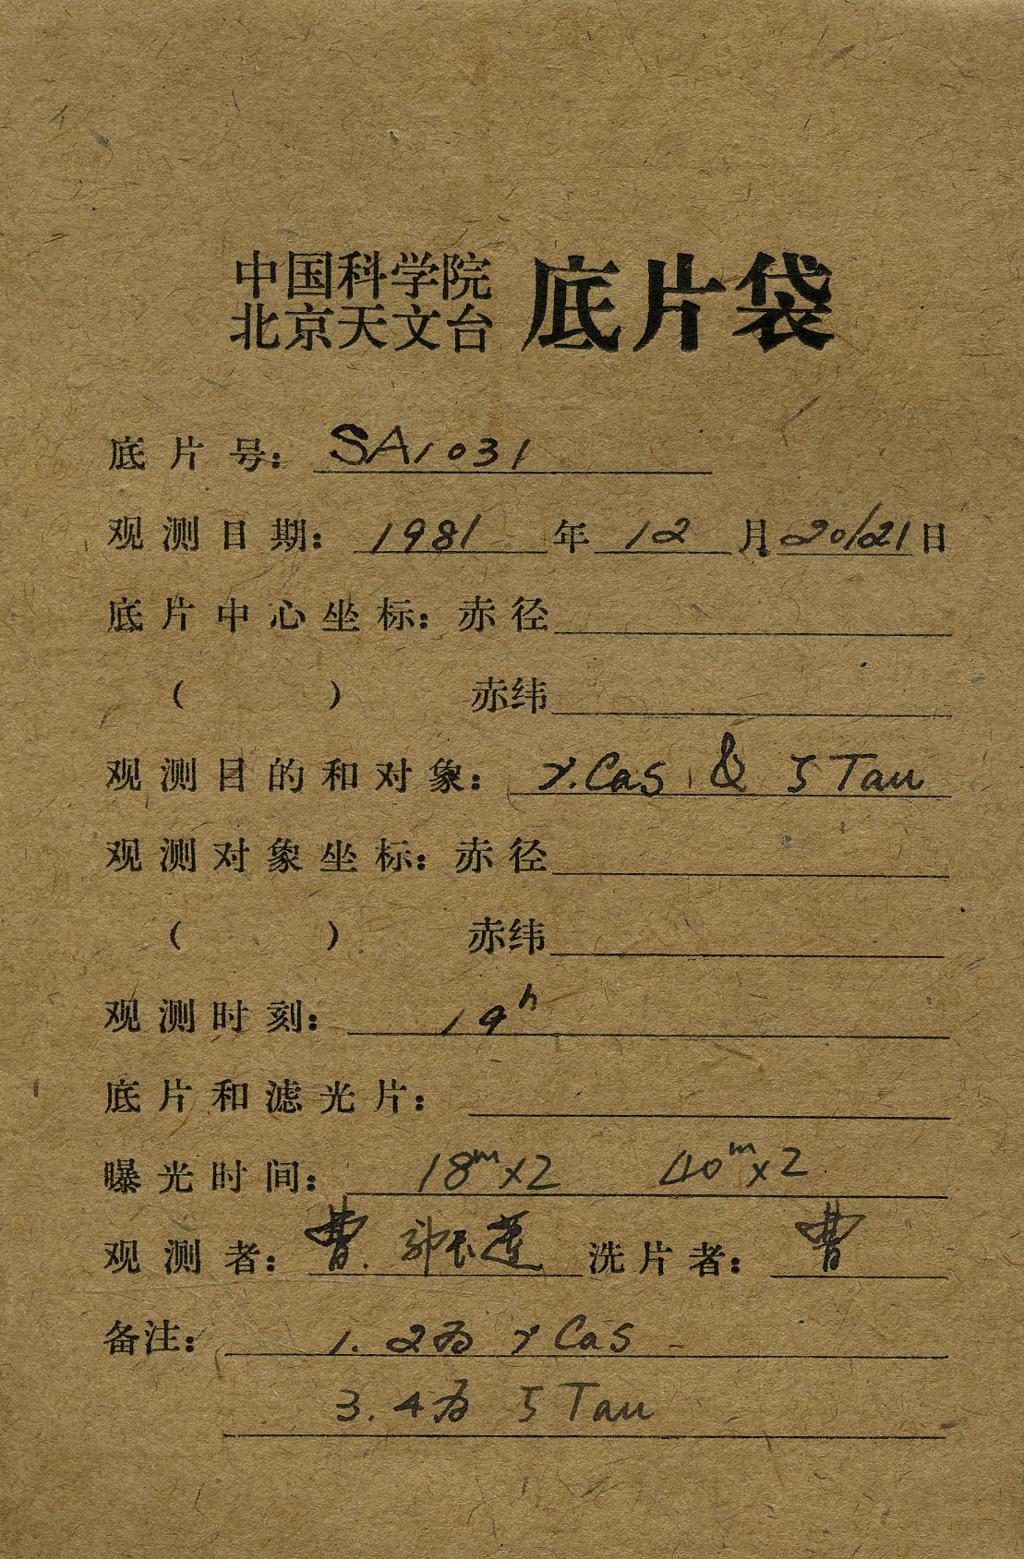 中国科学院
北京天文台
底片袋
底片号: SA1031
观测日期: 1981 年 12 月 20/21 日
底片中心坐标: 赤径
( ) 赤纬
观测目的和对象: γ.Cas & ζ Tau
观测对象坐标: 赤径
( ) 赤纬
观测时刻: 19h
底片和滤光片:
曝光时间: 18m×2 40m×2
观测者: 曹. 郭玉莲 洗片者: 曹
备注: 1. 2为 γ Cas
3. 4为 ζ Tau